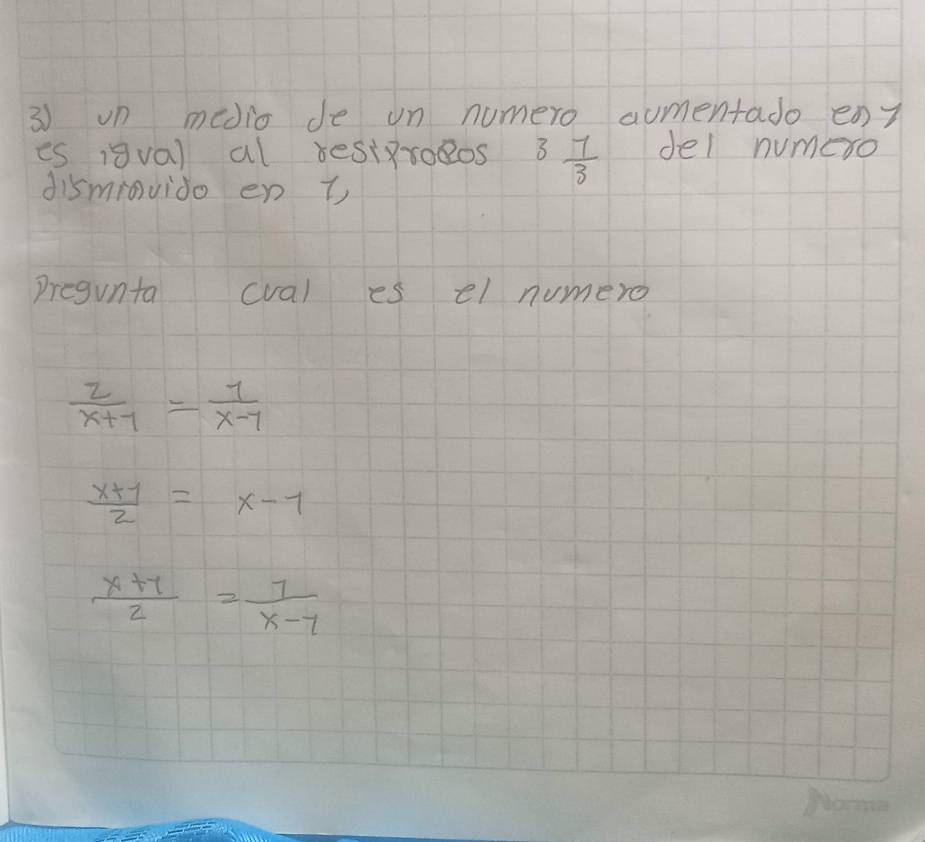 3) un medio de un numero aumentado en 1
es igual al resiprocos 3 1/3 del numero
disminuido en 1,
Pregunta cual es el numero
2/(x+1) = 1/(x-1)
(x+1)/2 = x-1
(x+1)/2 = 1/(x-1)
Norma